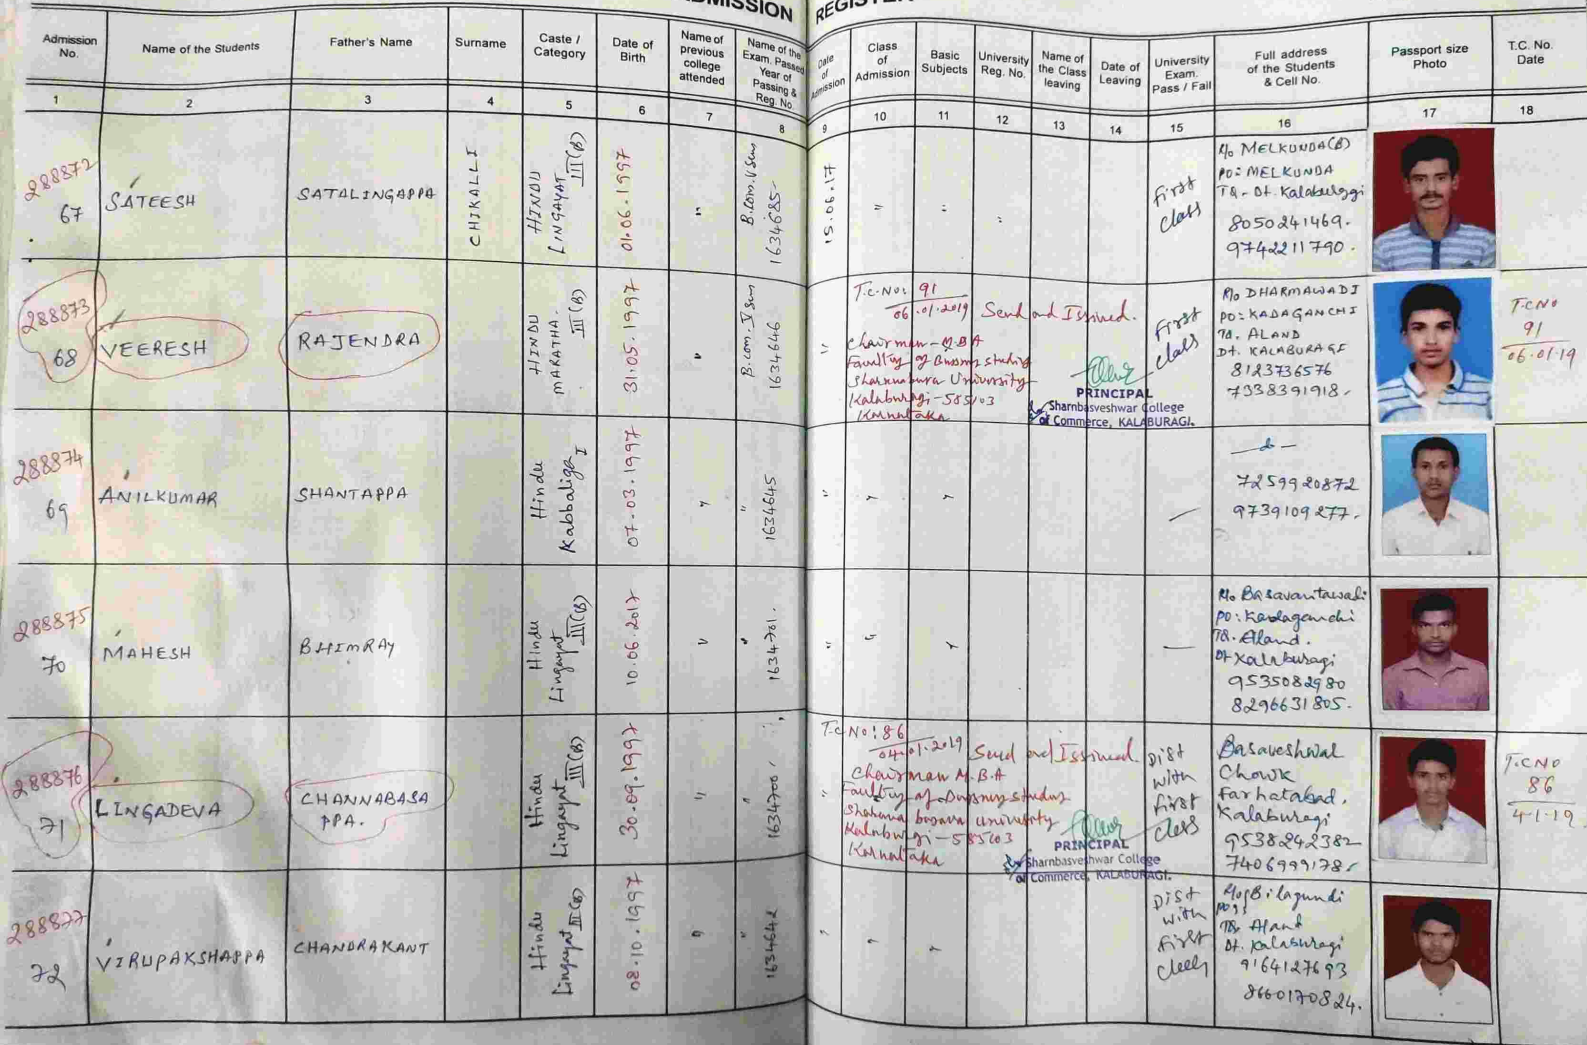 ADMISSION REGISTER
Admission No.
Name of the Students
Father's Name
Surname
Caste / Category
Date of Birth
Name of previous college attended
Name of the Exam. Passed Year of Passing & Reg. No.
Date of Admission
Class of Admission
Basic Subjects
University Reg. No.
Name of the Class leaving
Date of Leaving
University Exam. Pass / Fail
Full address of the Students & Cell No.
Passport size Photo
T.C. No. Date
1 2 3 4 5 6 7 8 9 10 11 12 13 14 15 16 17 18
288872
67
SATEESH
SATALINGAPPA
CHIKALLI
HINDU
LINGAYAT III(B)
01.06.1997
"
B.com. V Sem
1634685-
15.06.17
"
"
"
First
class
R/o MELKUNDA(B)
PO: MELKUNDA
TQ- Dt. Kalaburggi
8050241469.
9742211790.
288873
68
VEERESH
RAJENDRA
HINDU
MARATHA. III(B)
31.05.1997
"
B.com. V Sem
1634646
"
T.C-NO: 91
06.01.2019
Send and Issived.
Chairman-M.B.A
Faculty of
University
Kalaburagi-585103
Karnataka
PRINCIPAL
Sharnbasveshwar College
of Commerce, KALABURAGI.
First
class
R/o DHARMAWADI
PO: KADAGANCHI
TQ. ALAND
Dt. KALABURAGE
8123736576
7338391918.
T.C NO
91
06.01.19
288874
69
ANILKUMAR
SHANTAPPA
Hindu
Kabbaliga I
07.03.1997
"
"
1634645
"
"
"
—
7259920872
9739109277.
288875
70
MAHESH
BHIMRAY
Hindu
Lingayat III(B)
10.06.2017
"
"
1634701.
"
"
"
—
R/o Basavantawadi
PO: Kadaganchi
TQ. Aland.
Dt Kalaburagi
9535082980
8296631805.
288876
71
LINGADEVA
CHANNABASA
PPA.
Hindu
Lingayat III(B)
30.09.1997
"
"
1634700
"
T.C No: 86
04.01.2019
Send and Issived
Chairman M.B.A
Faulty of
Sharana basava University
Kalaburgi-585103
Karnataka
PRINCIPAL
Sharnbasveshwar College
of Commerce, KALABURAGI.
Dist
with
First
class
Basaveshwal
Chowk
Farhatabad.
Kalaburagi
9538242382
7406999178.
T.C NO
86
4-1-19
288877
72
VIRUPAKSHAPPA
CHANDRAKANT
Hindu
Lingayat III(B)
08.10.1997
"
"
1634642
"
"
"
Dist
with
First
R/o Bilagundi
TQ. Aland
Dt. Kalaburagi
9164127693
8660170824.